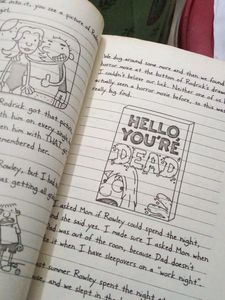 into it, you see a picture of R
Rodrick got that picture
him on every single
en him with THAT g
membered her.
Rowley, but I
was getting all
We dug around some more and then we found
horror movie at the bottom of Rodrick's drawer
I couldn't believe our luck. Neither one of us h
actually seen a horror movie before, so this was
really big find.
HELLO,
YOU'RE
DEAD
I asked Mom if Rowley could spend the night,
and she said yes. I made sure I asked Mom when
Dad was out of the room, because Dad doesn't
like it when I have sleepovers on a "work night".
Last summer Rowley spent the night at
house, and we slept in the